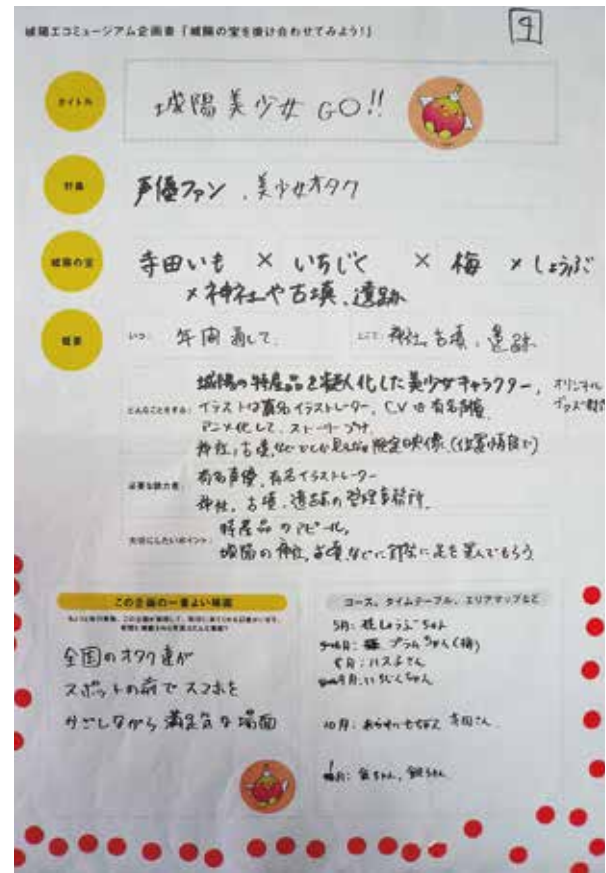 城陽エコミュージアム企画書「城陽の宝を掛け合わせてみよう！」
9
タイトル
城陽美少女GO!!
対象
声優ファン、美少女オタク
城陽の宝
寺田いも × いちじく × 梅 × しょうぶ
×神社や古墳、遺跡
概要
いつ: 年間通して
どこで: 神社、古墳、遺跡
城陽の特産品を擬人化した美少女キャラクター、オリジナル
どんなことをする: イラストは有名イラストレーター、CVは有名声優
アニメ化して、ストーリー
神社、古墳などでしか見れない限定映像(位置情報で)
必要な協力者: 有名声優、有名イラストレーター
神社、古墳、遺跡の管理事務所
大切にしたいポイント: 特産品のアピール、
城陽の神社、古墳などに実際に足を運んでもらう
この企画の一番よい場面
全国のオタク達が
スポットの前でスマホを
かざしながら満足気な場面
コース、タイムテーブル、エリアマップなど
5月: 花しょうぶちゃん
6月: プラムちゃん(梅)
8月: ハスみさん
9月: いちじくちゃん
10月: 寺田さん
月: 金ちゃん、銀ちゃん